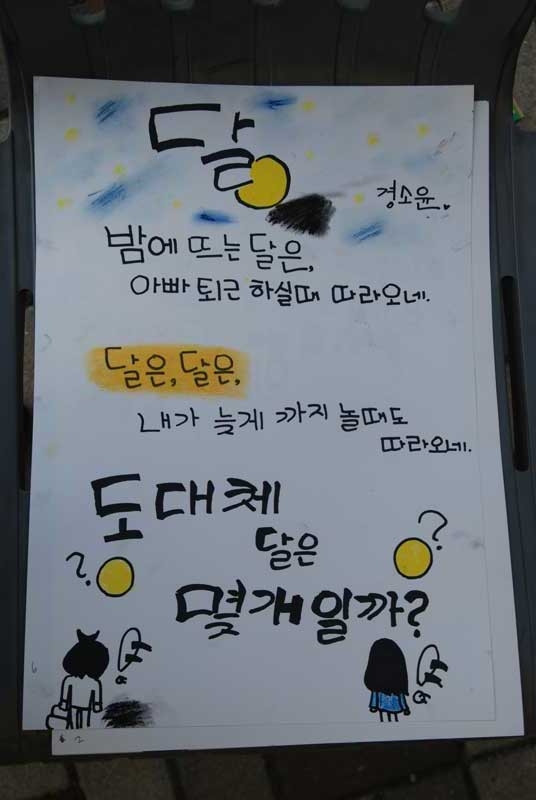 달
경소윤.
밤에 뜨는 달은,
아빠 퇴근 하실때 따라오네.
달은, 달은,
내가 늦게 까지 놀때도
따라오네.
도대체
달은
?
?
몇개일까?